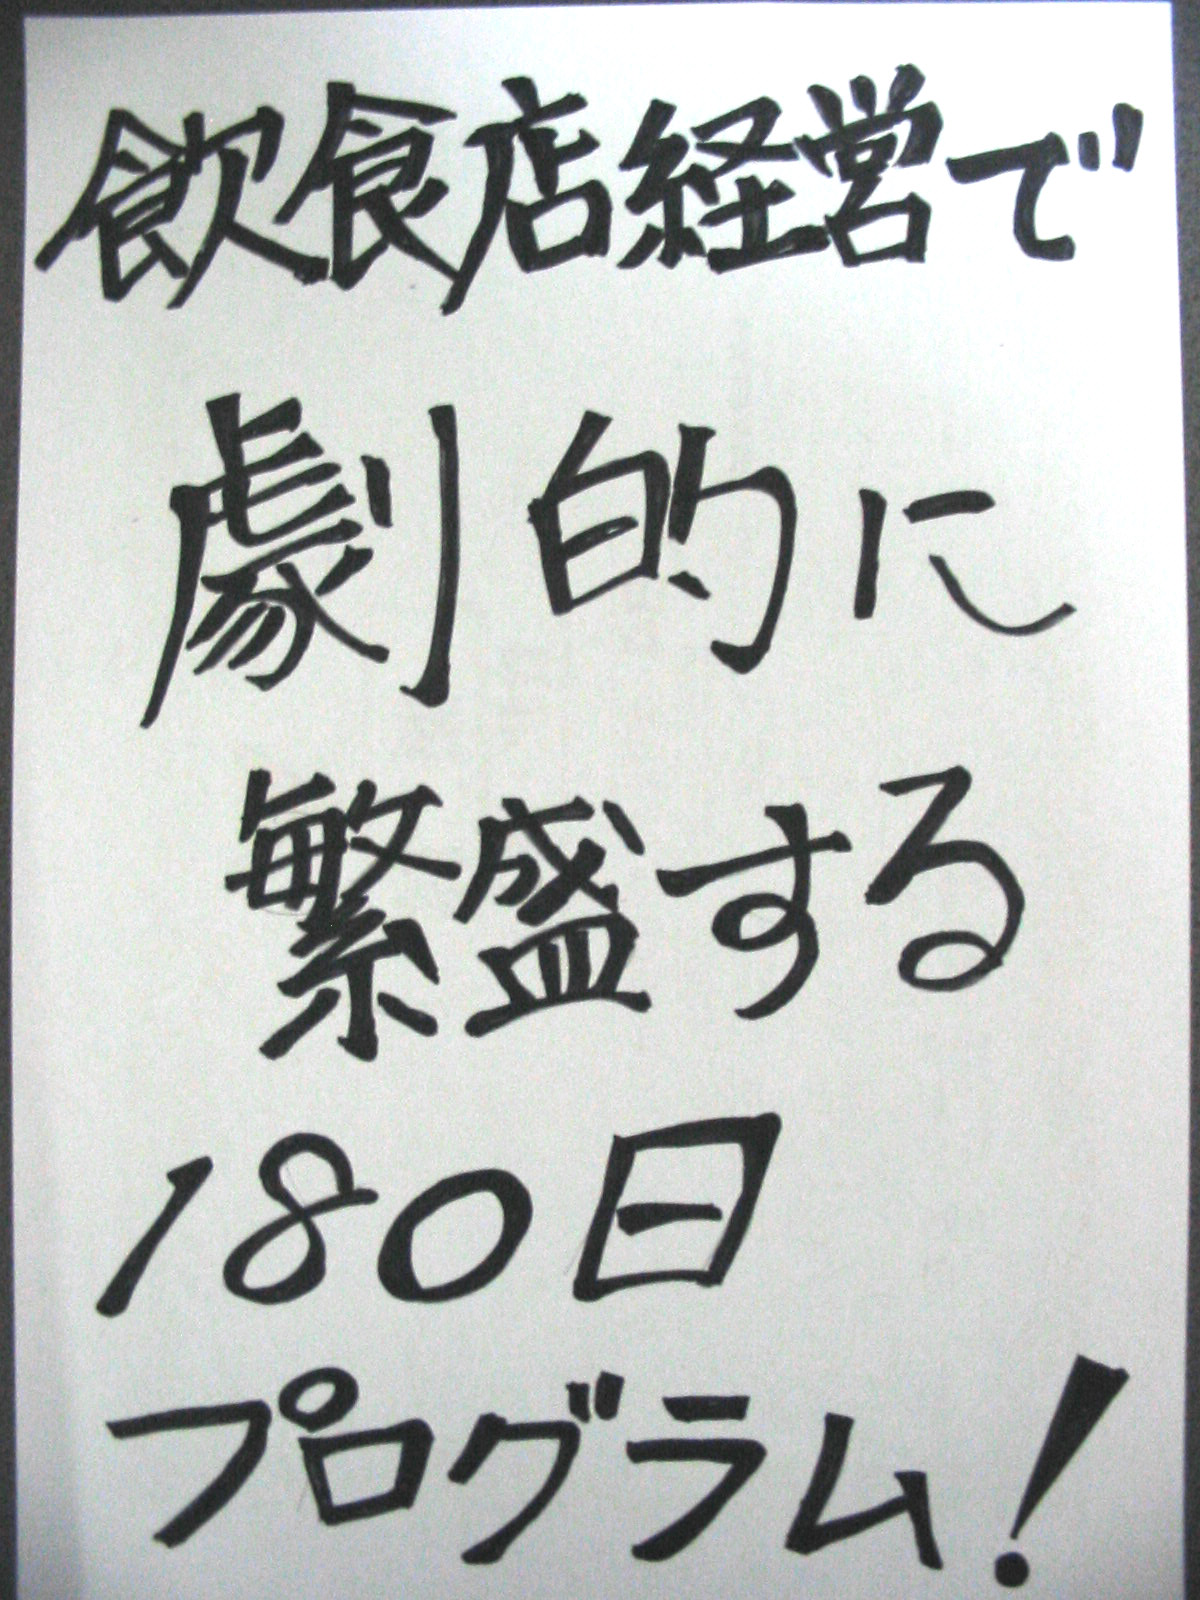 飲食店経営で
劇的に
繁盛する
180日
プログラム!